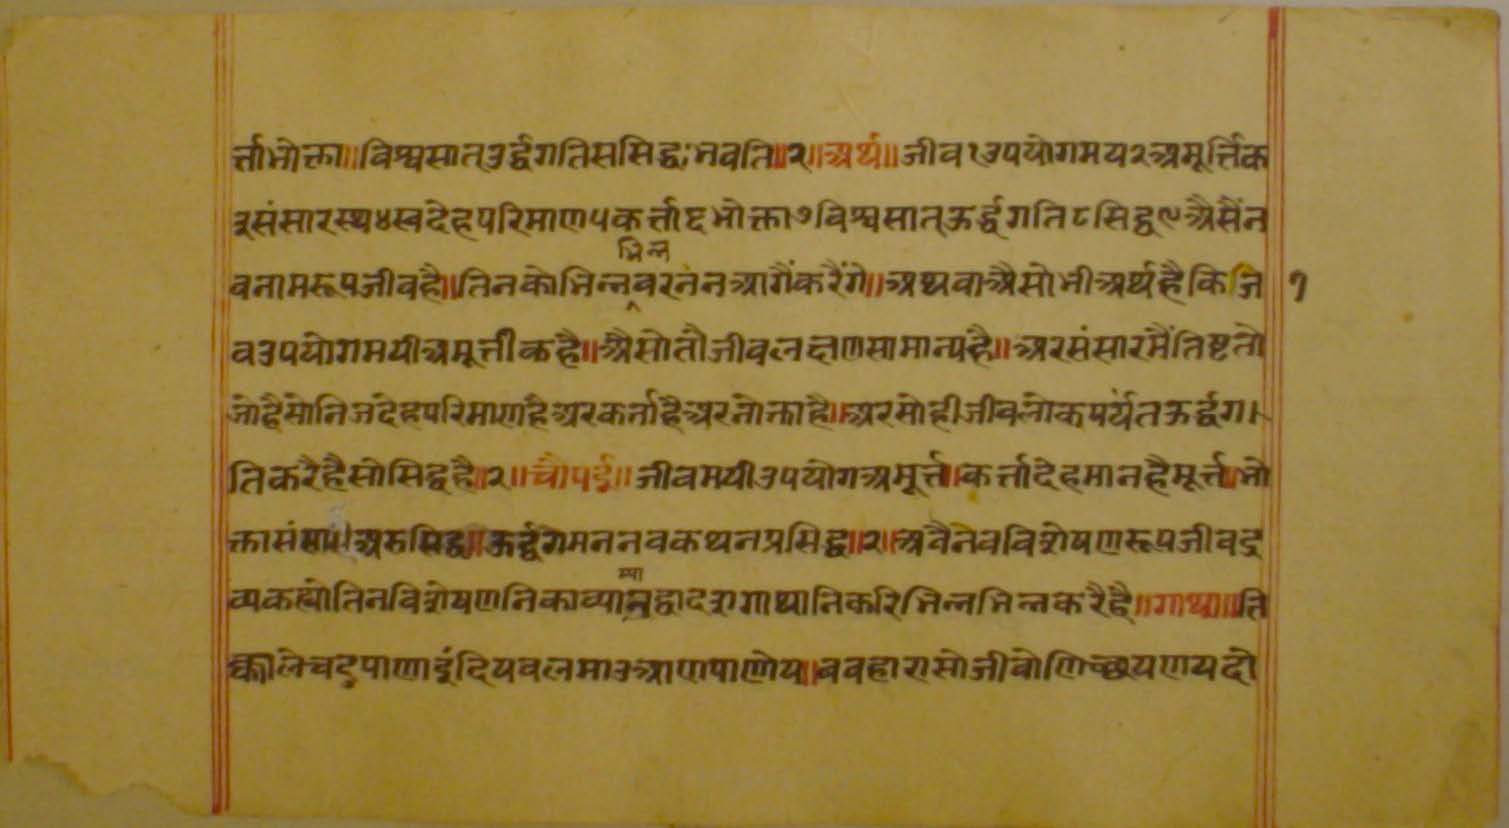 र्त्ताभोक्ता॥विश्वसात्उर्द्धगतिससिद्धःभवति॥२॥अर्थ॥जीव१उपयोगमय२अमूर्त्तिक
३संसारस्थ४स्वदेहपरिमाण५कर्त्ता६भोक्ता७विश्वसात्ऊर्द्धगति८सिद्ध९अैसैंन
भिन्न
वनामरूपजीवहै॥तिनकोभिन्नवरननआगैंकरैंगे॥अथवाअैसोभीअर्थहैकिजि १
वउपयोगमयीअमूर्त्तीकहै॥अैसोतौजीवलक्षणसामान्यहै॥अरसंसारमैंतिष्टतो
जोहैसोनिजदेहपरिमाणहैअरकर्त्ताहैअरभोक्ताहै॥अरसोहीजीवलोकपर्यंतऊर्द्धग
तिकरैहैसोसिद्धहै॥२॥चौपई॥जीवमयीउपयोगअमूर्त्त॥कर्त्तादेहमानहैमूर्त्त॥भो
क्तासंसारीअरुसिद्ध॥ऊर्द्धगमननवकथनप्रसिद्ध॥२॥अवैनवविशेषणरूपजीवद्र
म्या
व्यकह्योतिनविशेषणनिकाव्याद्वादशगाथानिकरिभिन्नभिन्नकरैहै॥गाथा॥ति
क्कालेचदुपाणाइंदियवलमाउआणपाणोय॥ववहारासोजीवोणिच्छयणयदो